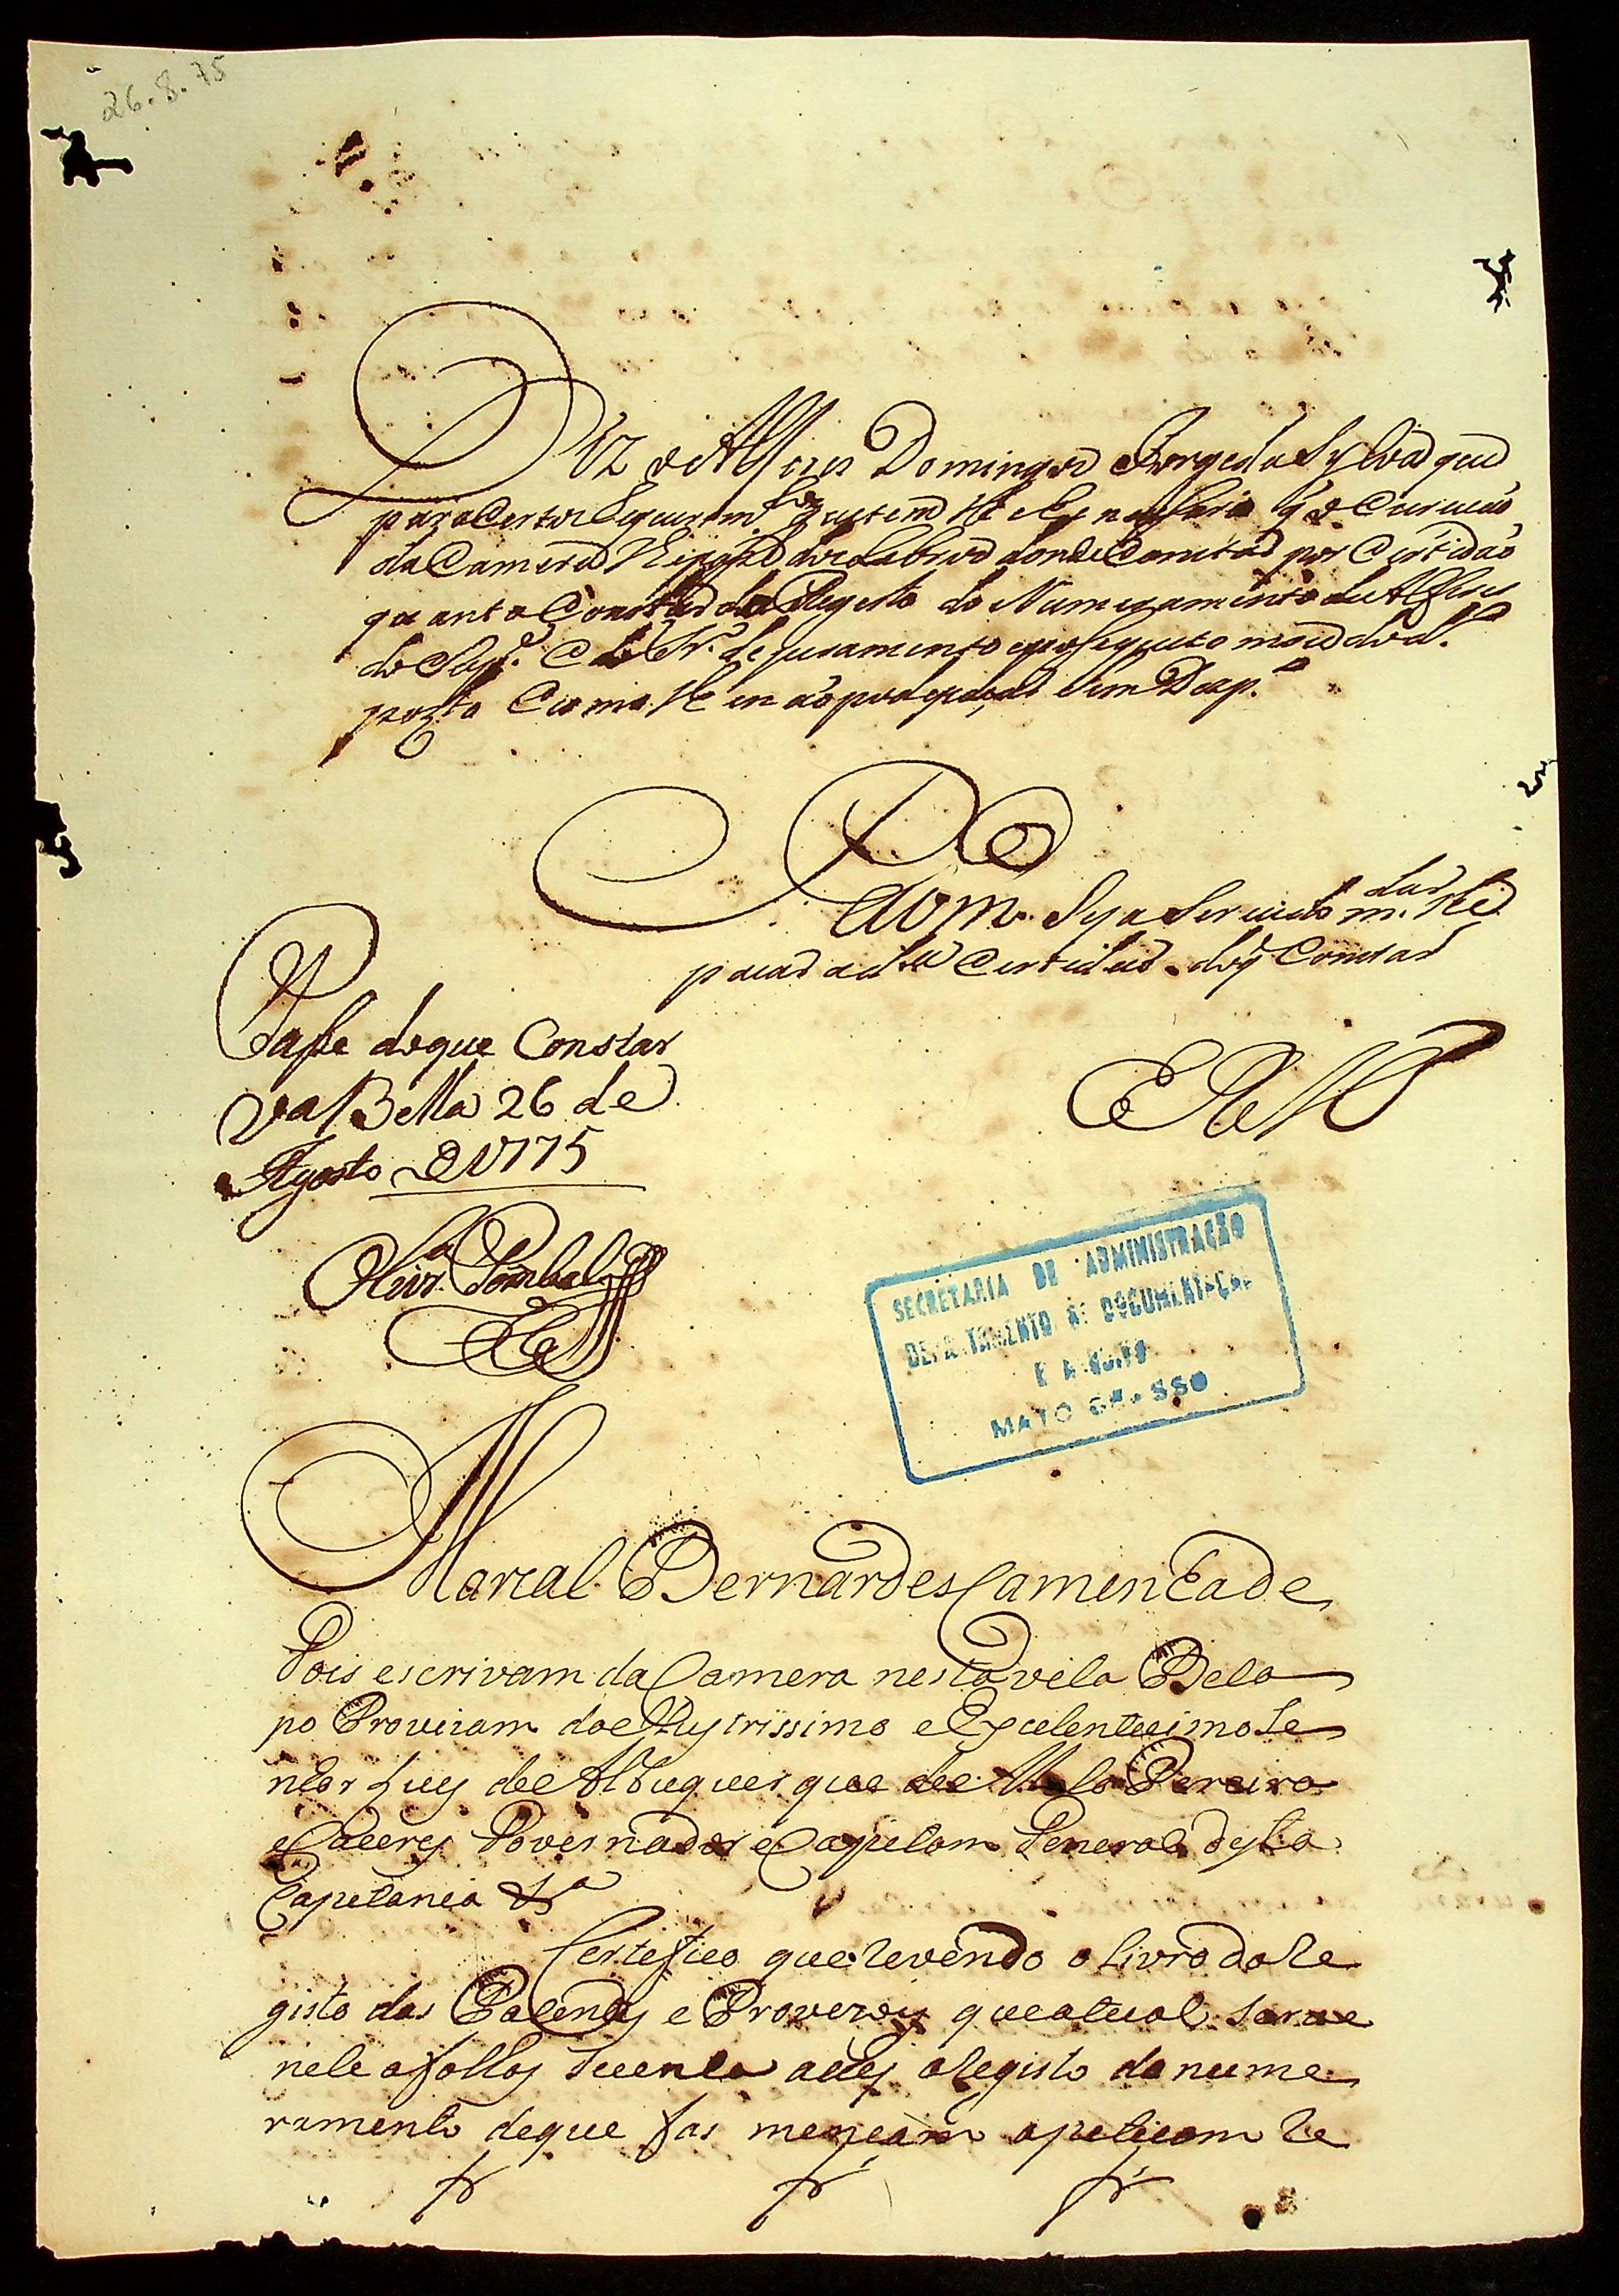 26.8.75
Diz o Alferes Domingos Borges da Sylva que
para certos Requerim.tos q' tem lhe he necessario q' o Escrivão
da Camera Revendo os Livros donde Constar por Certidão
quanto Constar do Registo do Numeramento de Alferes
do Sup.e
posto Como lhe não pode passar sem Desp.o
P
a Vm. Seja Servido m.dar lhe
passar a d.ta Certidão do q' Constar
E R M
Passe do que Constar
V.a Bella 26 de
Agosto D 1775
Oliv.ra Pombal
SECRETARIA DE ADMINISTRAÇÃO
DEPARTAMENTO DE DOCUMENTAÇÃO
E ARQUIVO
MATO GROSSO
Marcal Bernardes Camenha de
Pois escrivam da Camera nesta vila Bela
po Provizam do Illustrissimo e Excelentissimo Se
nhor Luis de Albuquerque de Melo Pereira
e Caceres Governador e Capitam General desta
Capitania &.a
Certefico que revendo o Livro do Re
gisto das Patentes e Provezois que atual serve
nele a folhas secenta a o Registo do nume
ramento de que fas mençam a peticam re